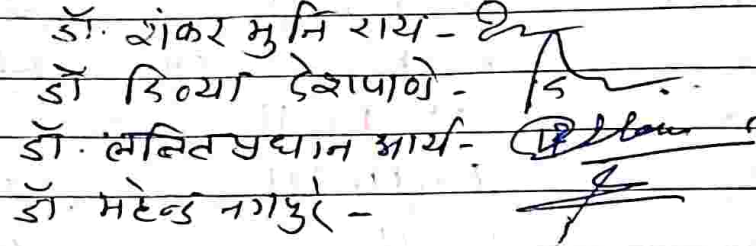 डॉ. शंकर मुनि राय -
डॉ दिव्या देशपाण्डे -
डॉ. ललित प्रधान आर्य -
डॉ. महेन्द्र नगपुरे -